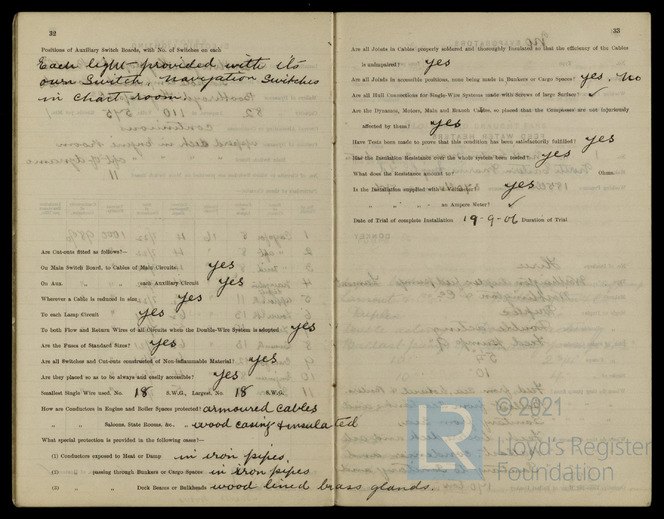 32
Positions of Auxiliary Switch Boards, with No. of Switches on each
Each light provided with its
own switch, navigation switches
in chart room.
Are Cut-outs fitted as follows?—
On Main Switch Board, to Cables of Main Circuits yes
On Aux. „ „ each Auxiliary Circuit yes
Wherever a Cable is reduced in size yes
To each Lamp Circuit yes
To both Flow and Return Wires of all Circuits when the Double-Wire System is adopted yes
Are the Fuses of Standard Sizes? yes
Are all Switches and Cut-outs constructed of Non-inflammable Material? yes
Are they placed so as to be always and easily accessible? yes
Smallest Single Wire used, No. 18 S.W.G., Largest, No. 18 S.W.G.
How are Conductors in Engine and Boiler Spaces protected? armoured cables
„ „ Saloons, State Rooms, &c., „ wood casing & insulated
What special protection is provided in the following cases?—
(1) Conductors exposed to Heat or Damp in iron pipes.
(2) „ passing through Bunkers or Cargo Spaces in iron pipes
(3) „ „ Deck Beams or Bulkheads wood lined brass glands.
33
Are all Joints in Cables properly soldered and thoroughly insulated so that the efficiency of the Cables
is unimpaired? yes
Are all Joints in accessible positions, none being made in Bunkers or Cargo Spaces? yes, no
Are all Hull Connections for Single-Wire Systems made with Screws of large Surface? ✓
Are the Dynamos, Motors, Main and Branch Cables, so placed that the Compasses are not injuriously
affected by them? yes
Have Tests been made to prove that this condition has been satisfactorily fulfilled? yes
Has the Insulation Resistance over the whole system been tested? yes
What does the Resistance amount to? Ohms.
Is the Installation supplied with a Voltmeter? yes
„ „ „ an Ampere Meter? ✓
Date of Trial of complete Installation 19-9-06 Duration of Trial
LR
© 2021
Lloyd's Register
Foundation